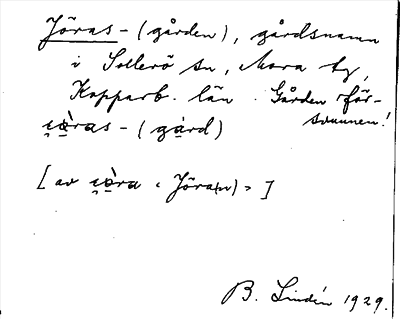 Jöras - (gården), gårdsnamn
i Sollerö sn, Mora tg,
Kopparb. län. Gården för-
svunnen!
ı̯ò̤ras - (gård)
[av ı̯ò̤ra < Jöra(n) = ]
B. Lindén 1929.